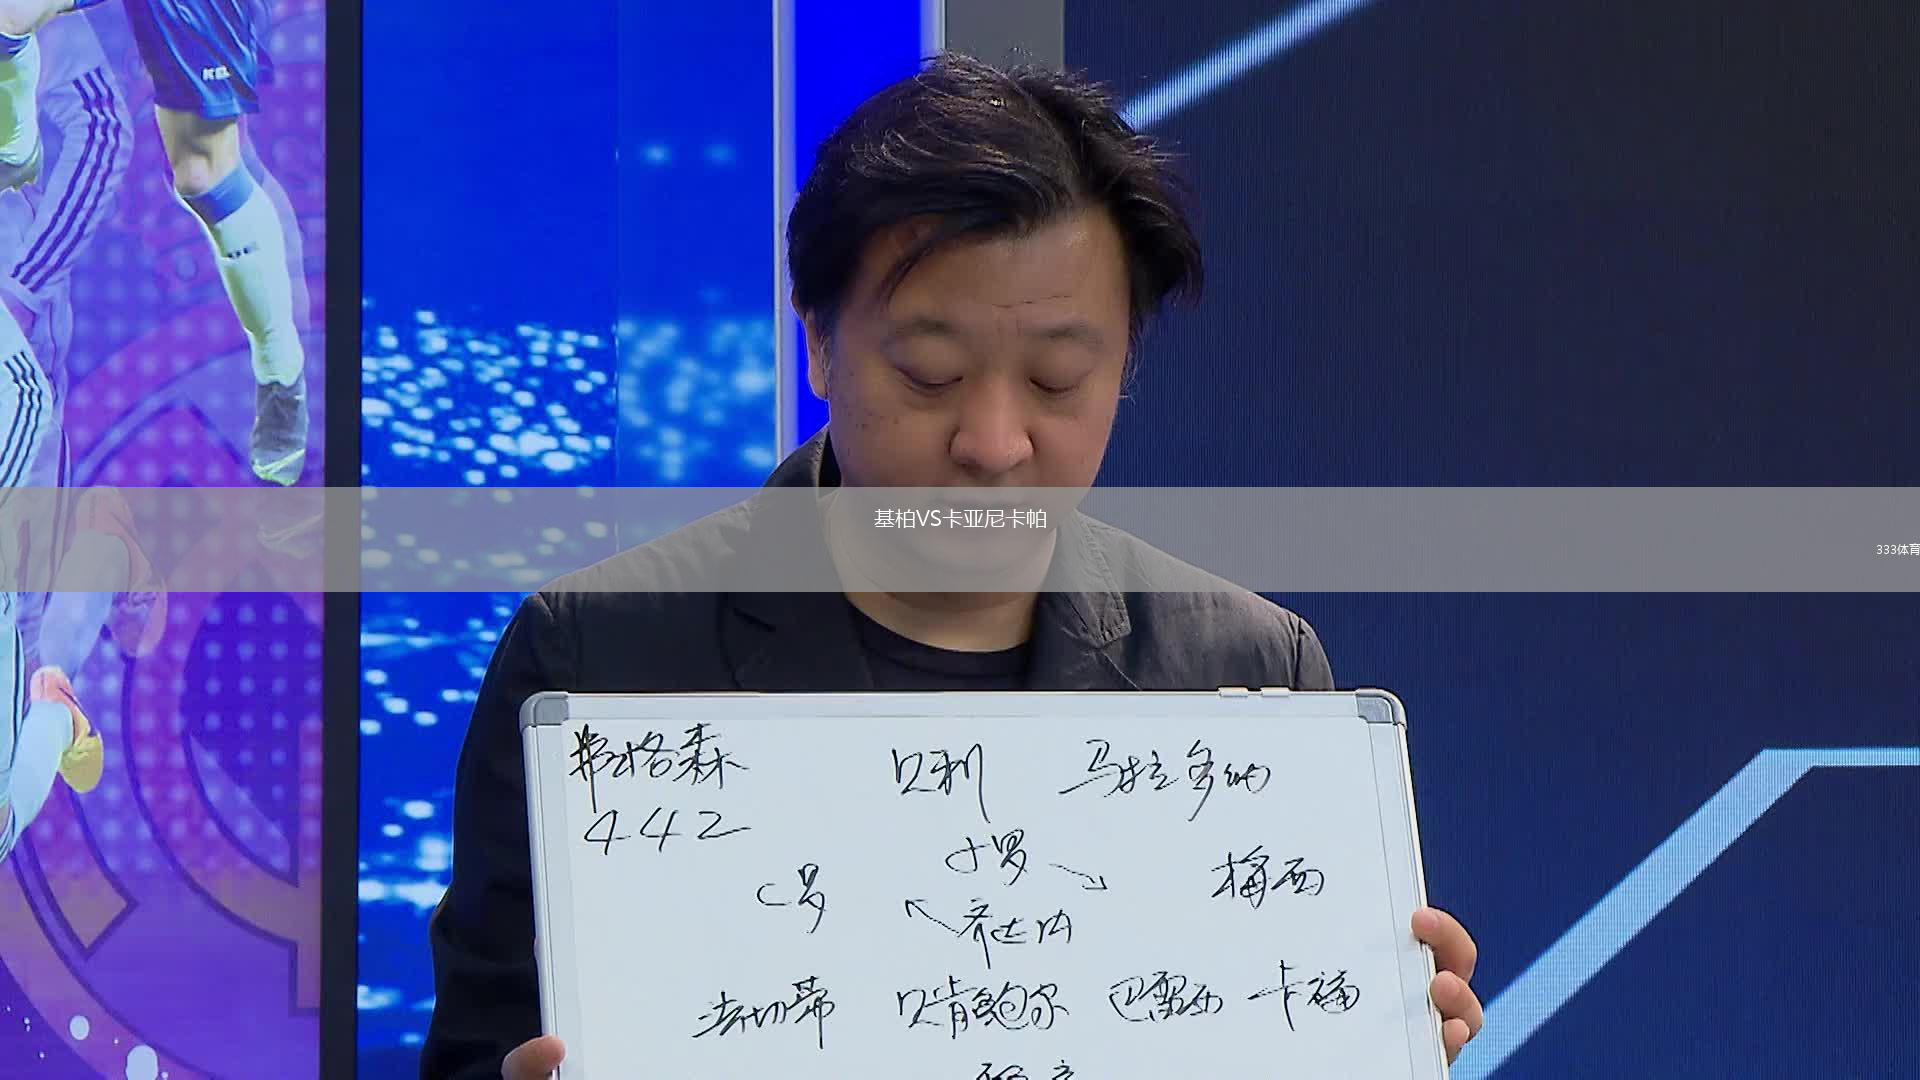 基柏VS卡亚尼卡帕
333体育
弗格森 贝利 马拉多纳
442
C罗 小罗 梅西
齐达内
法切蒂 贝肯鲍尔 巴雷西 卡福